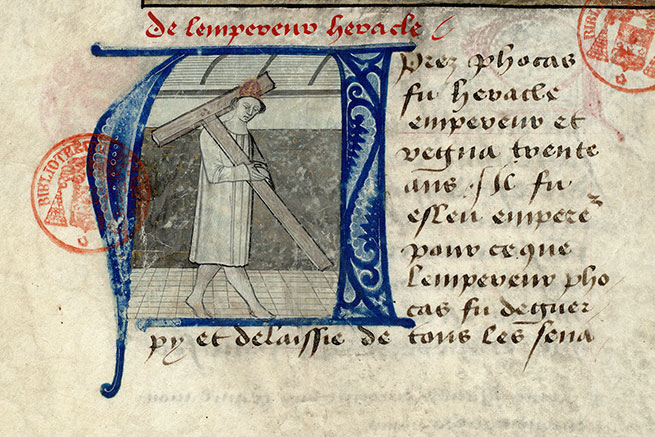 de lempereur heracle
Prez phocas
fu heracle
empereur et
regna trente
ans. Il fu
esleu empere
pour ce que
lempereur pho
cas fu deguer
py et delaissie de tous les sena
BIBLIOTHE
BIBLIO